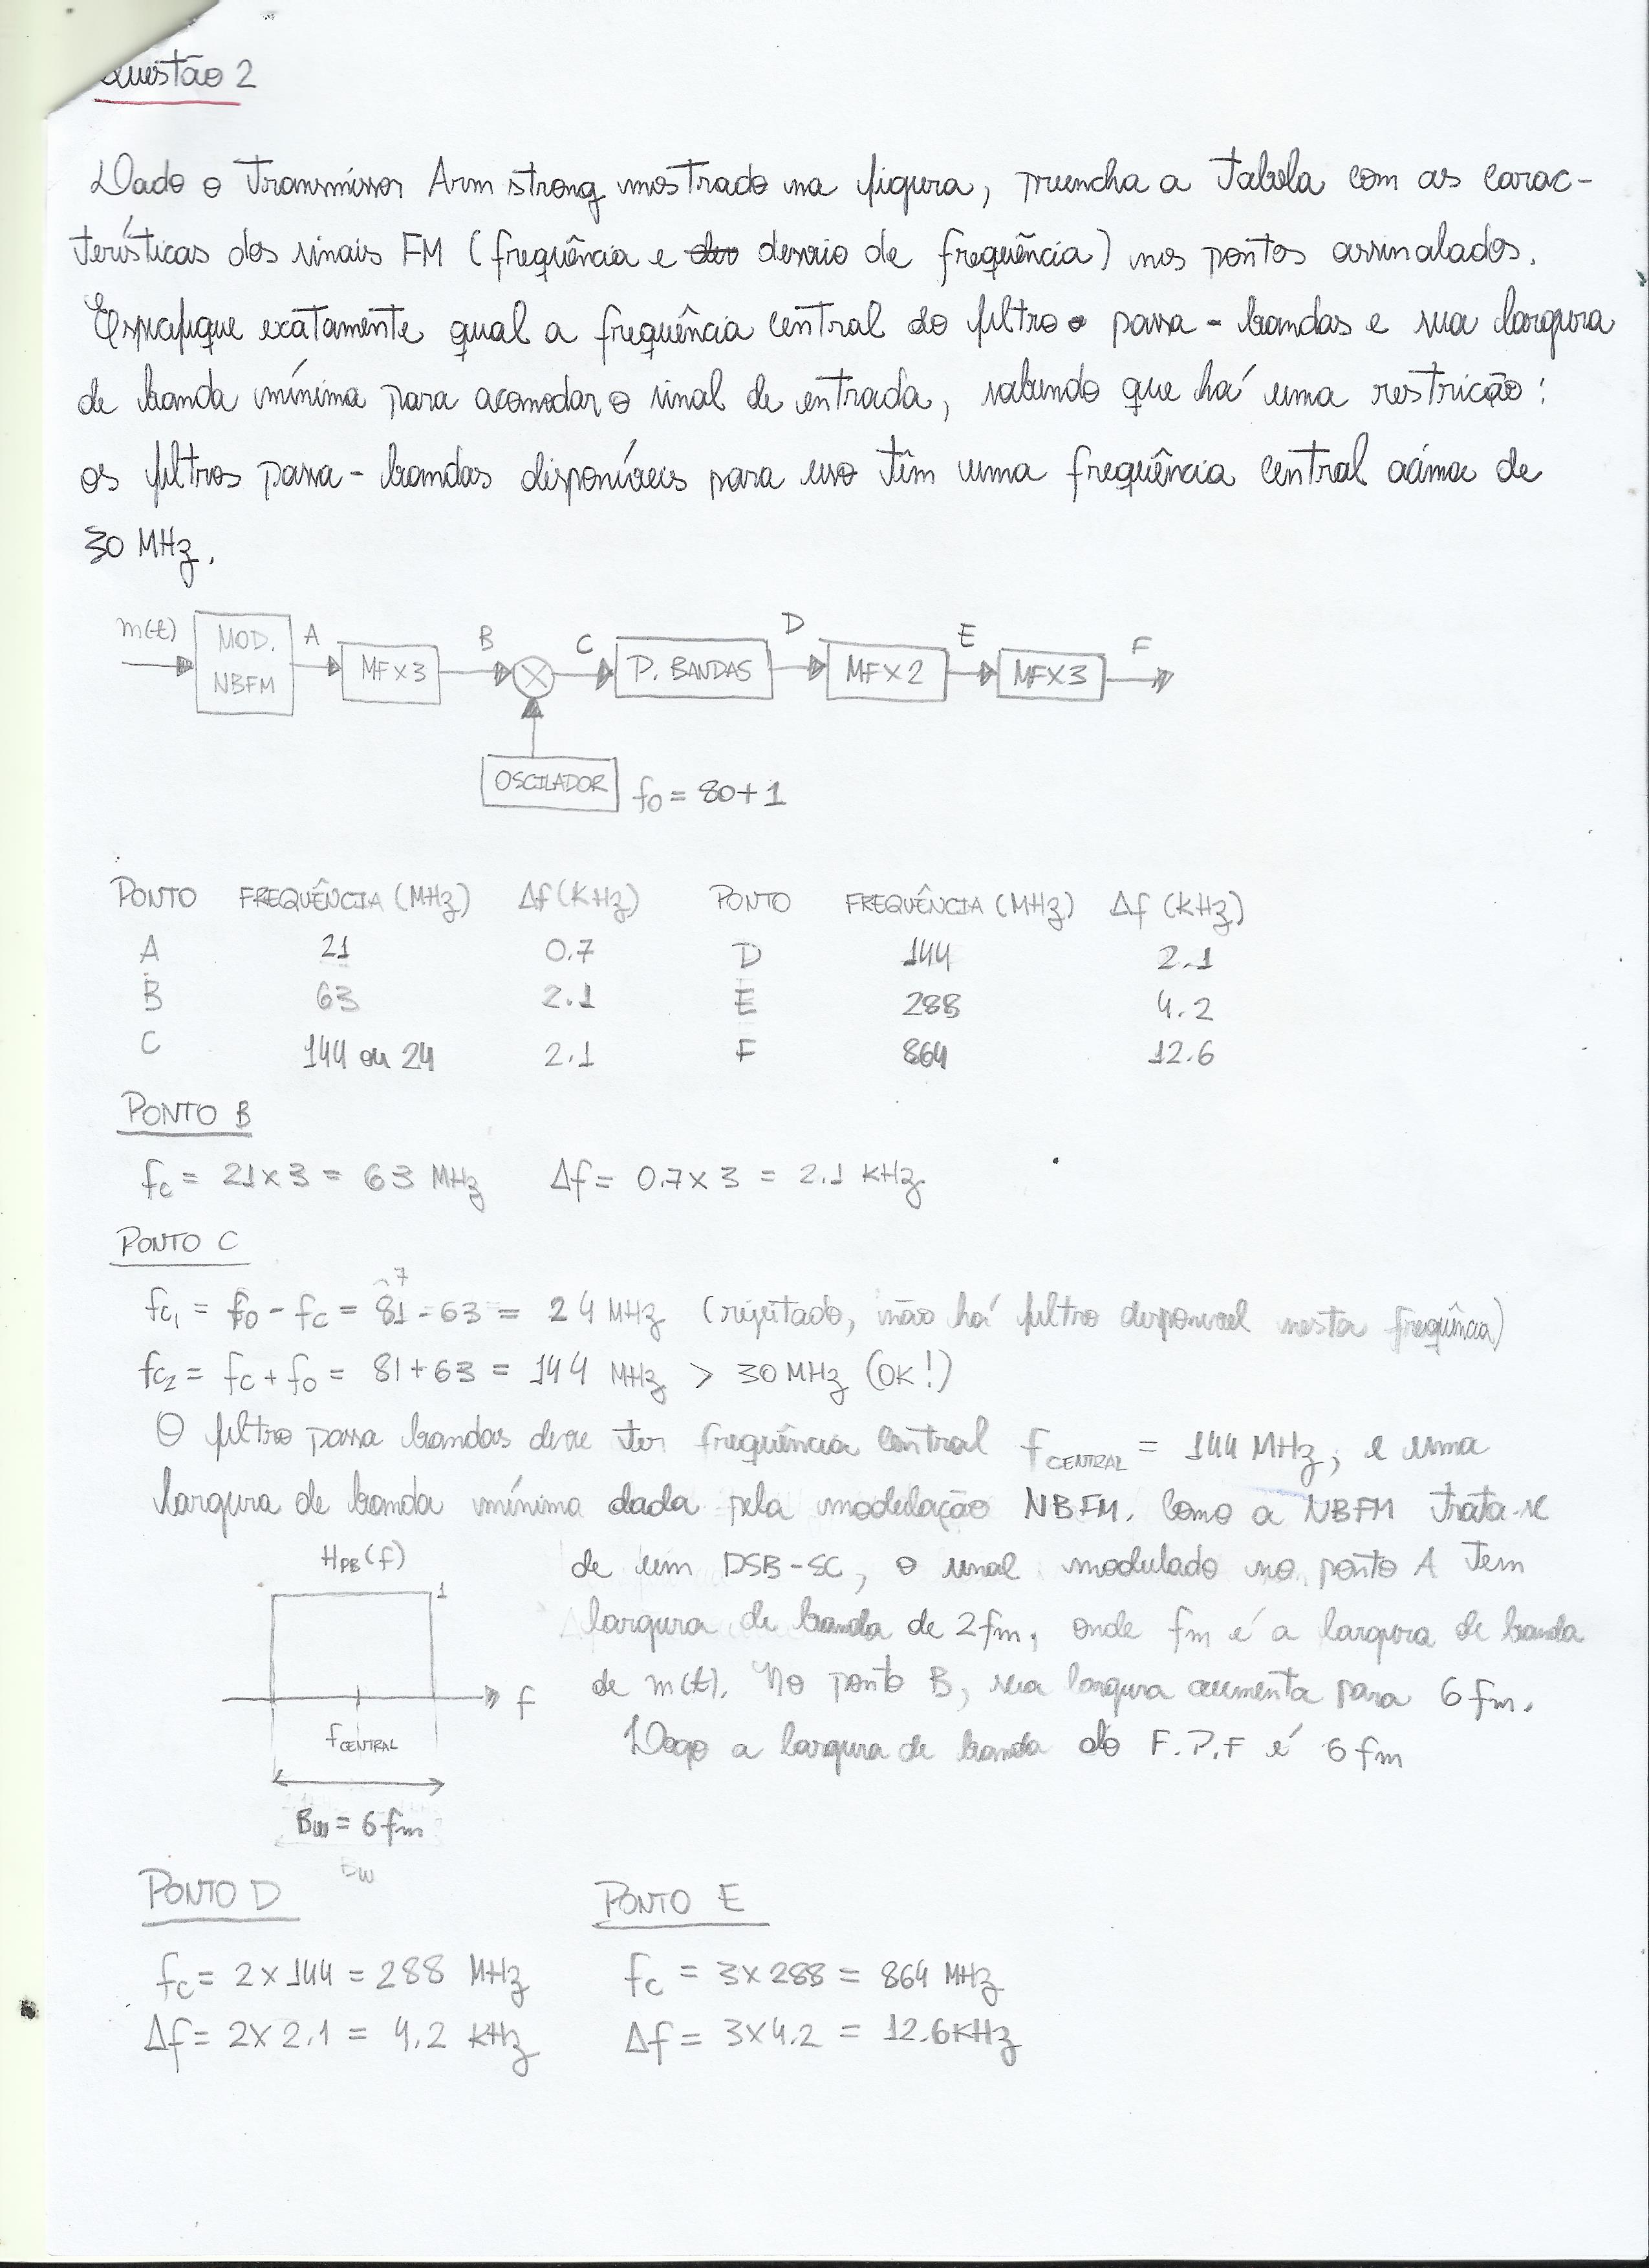 Questão 2
Dado o Transmissor Armstrong mostrado na figura, preencha a Tabela com as carac-
terísticas dos sinais FM (frequência e desvio de frequência) nos pontos assinalados.
Especifique exatamente qual a frequência central do filtro passa-bandas e sua largura
de banda mínima para acomodar o sinal de entrada, sabendo que há uma restrição:
os filtros passa-bandas disponíveis para uso têm uma frequência central acima de
30 MHz.
m(t) MOD. NBFM A MFX3 B C P. BANDAS D MFX2 E MFX3 F
OSCILADOR f0 = 80+1
PONTO FREQUÊNCIA (MHz) Δf (KHz) PONTO FREQUÊNCIA (MHz) Δf (KHz)
A 21 0.7 D 144 2.1
B 63 2.1 E 288 4.2
C 144 ou 24 2.1 F 864 12.6
PONTO B
fc = 21x3 = 63 MHz Δf = 0.7x3 = 2.1 KHz
PONTO C
7
fc1 = f0 - fc = 81 - 63 = 24 MHz (rejeitado, não há filtro disponível nesta freqûencia)
fc2 = fc + f0 = 81+63 = 144 MHz > 30 MHz (OK!)
O filtro passa bandas deve ter frequência central fCENTRAL = 144 MHz, e uma
largura de banda mínima dada pela modulação NBFM. Como a NBFM trata-se
de um DSB-SC, o sinal modulado no ponto A tem
largura de banda de 2fm, onde fm é a largura de banda
de m(t). No ponto B, sua largura aumenta para 6fm.
Logo a largura de banda do F.P.F é 6fm
HPB(f)
1
f
fCENTRAL
Bw = 6fm
Bw
PONTO D
fc = 2 x 144 = 288 MHz
Δf = 2x 2.1 = 4.2 KHz
PONTO E
fc = 3x288 = 864 MHz
Δf = 3x4.2 = 12.6KHz